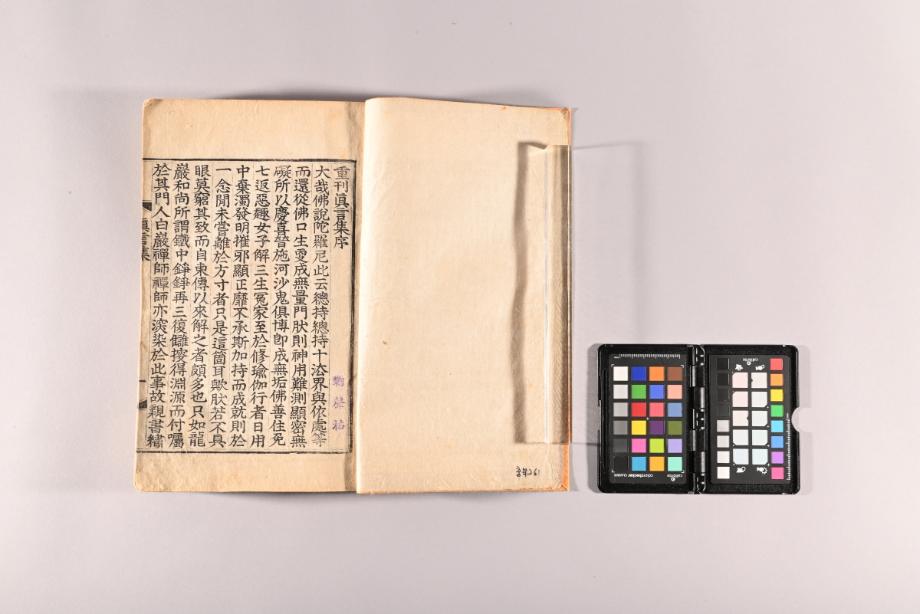 重刊眞言集序
大哉佛說陀羅尼此云總持總持十法界與依處等
而還從佛口生雯成無量門肰則神用難測顯密無
礙所以慶喜嘗施河沙鬼俱博卽成無垢佛善住免
七返惡趣女子解三生冤家至於修瑜伽行者日用
中棄濁發明摧邪顯正靡不承斯加持而成就則於
一念閒未嘗離於方寸者只是這箇耳歟肰若不具
眼莫窮其致而自東傳以來解之者頗多也只如龍
巖和尚所謂鐵中錚錚再三復讎挍得淵源而付囑
於其門人白巖禪師禪師亦滾染於此事故親書繡
眞言集